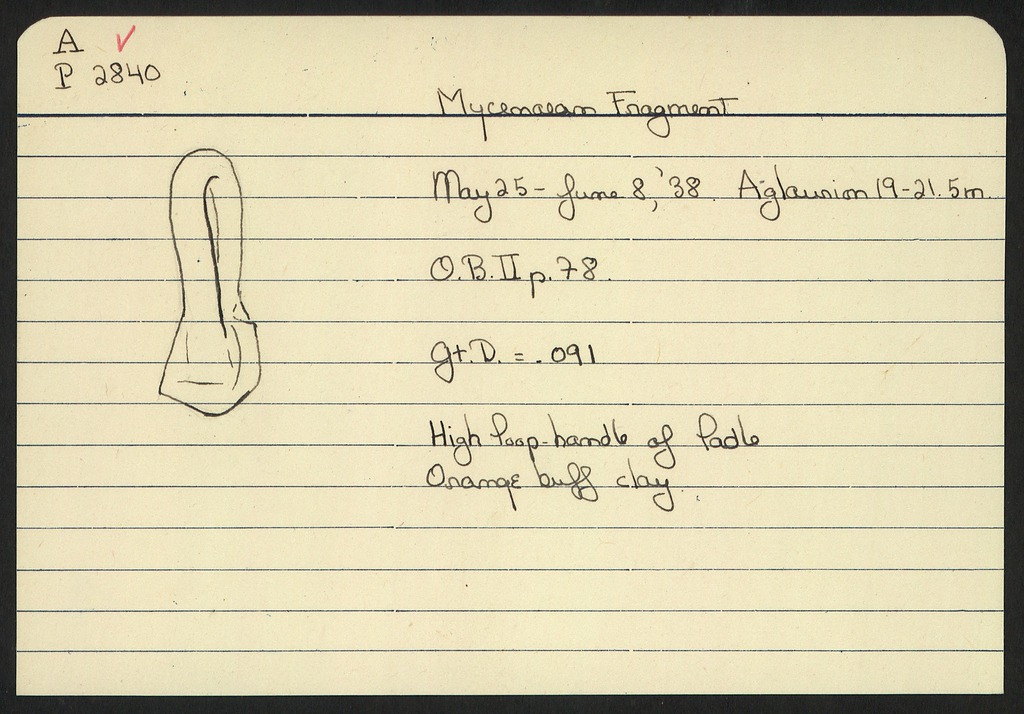 A ✓
P 2840
Mycenaean Fragment
May 25 - June 8, '38. Aglaurion 19-21.5m.
O.B.II p. 78.
gt.D. = .091
High loop-handle of ladle
Orange buff clay.